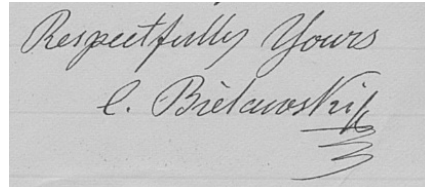 Respectfully Yours
C. Bielawski